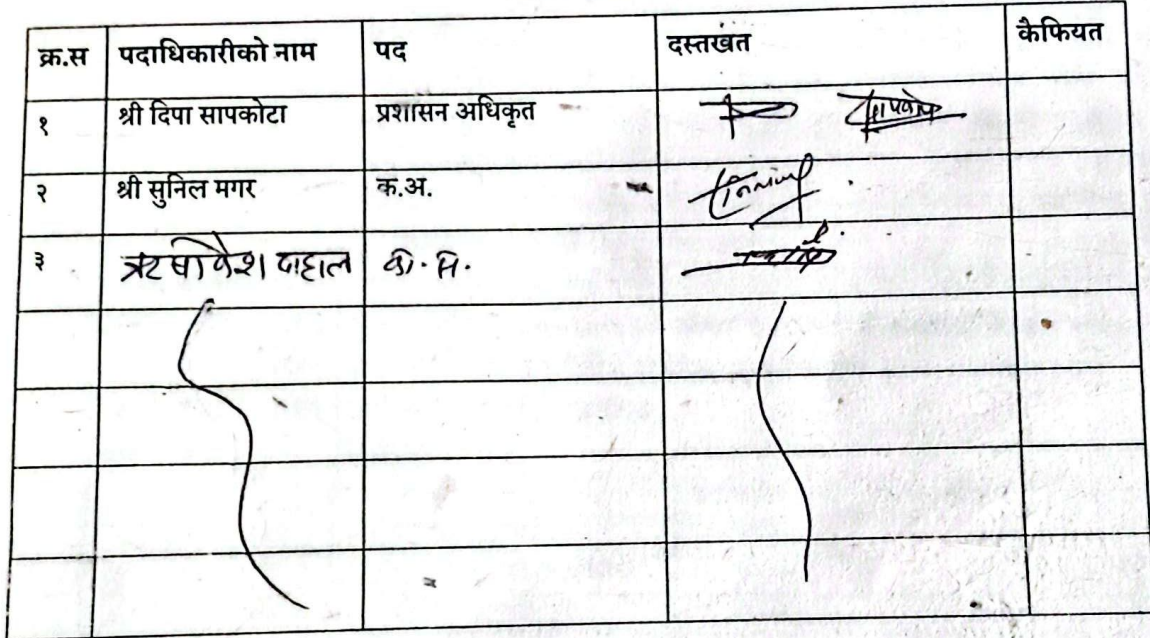 क्र.स पदाधिकारीको नाम पद दस्तखत कैफियत
१ श्री दिपा सापकोटा प्रशासन अधिकृत
२ श्री सुनिल मगर क.अ.
३ दाहाल